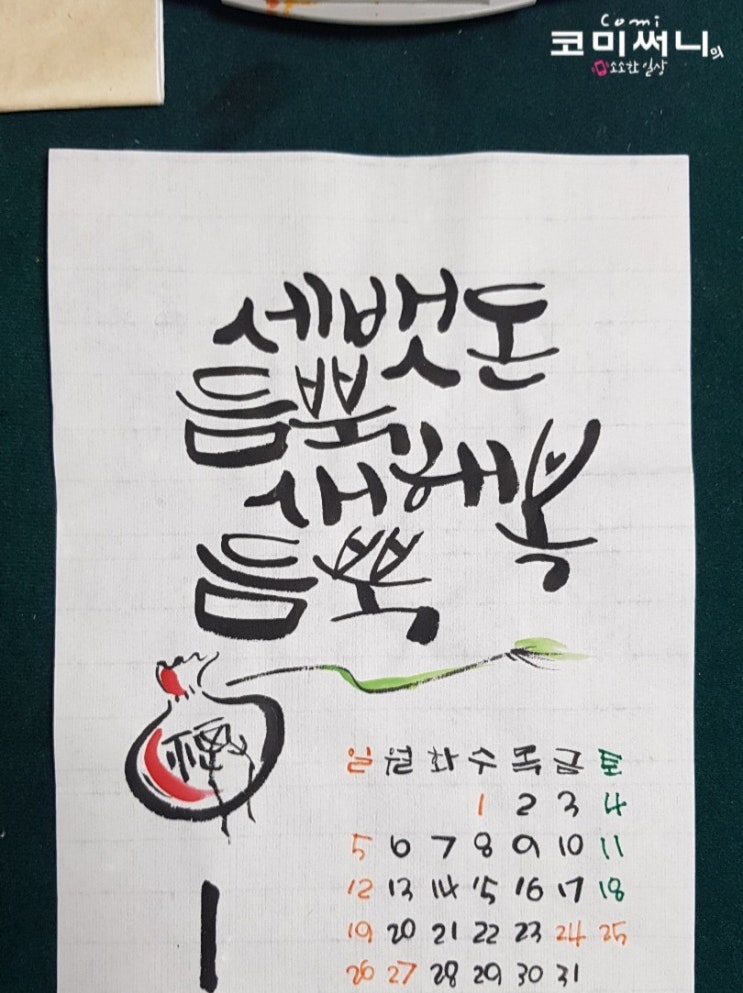 Comi
코미써니의
소소한 일상
세뱃돈
듬뿍
새해복
듬뿍
福
일 월 화 수 목 금 토
1 2 3 4
5 6 7 8 9 10 11
12 13 14 15 16 17 18
19 20 21 22 23 24 25
26 27 28 29 30 31
1